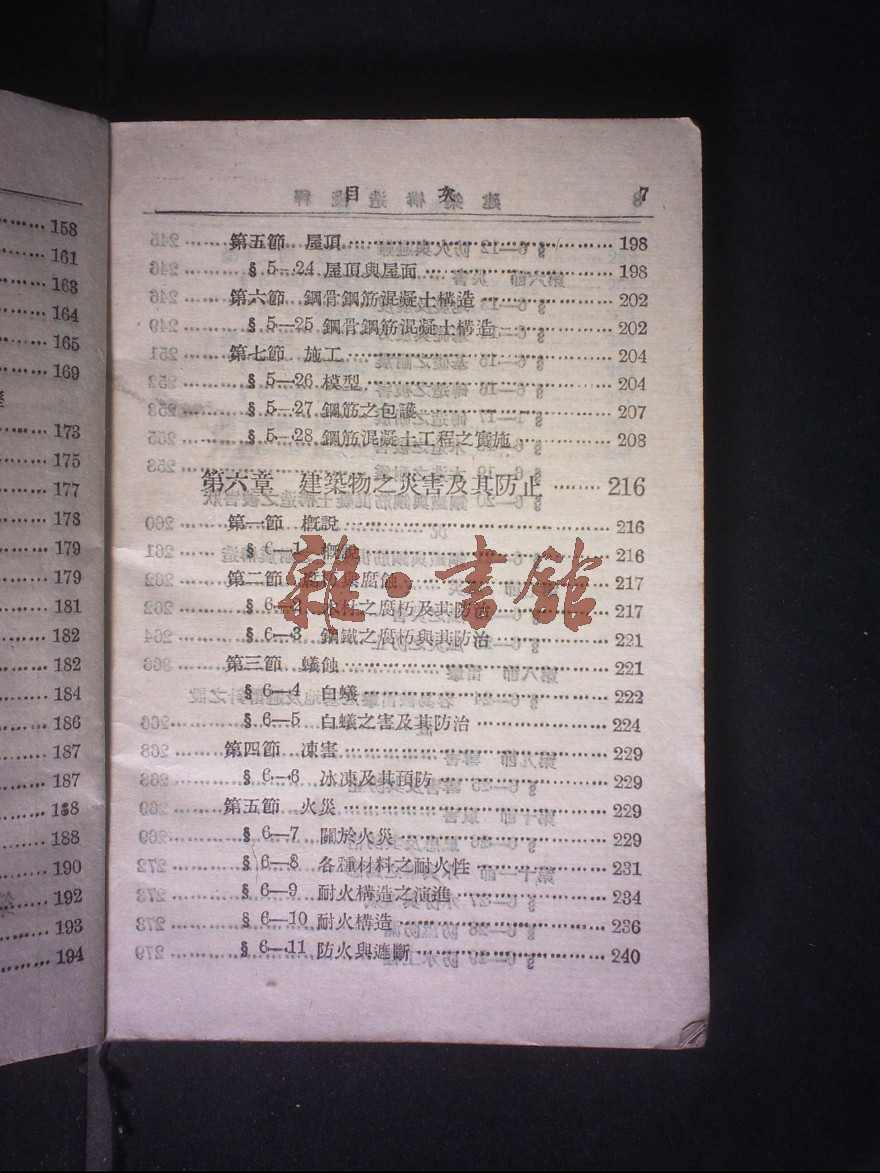 158
161
163
164
165
169
173
175
177
178
179
179
181
182
182
184
186
187
187
188
188
190
192
193
194
目次 7
第五節 屋頂 198
§ 5—24 屋頂與屋面 198
第六節 鋼骨鋼筋混凝土構造 202
§ 5—25 鋼骨鋼筋混凝土構造 202
第七節 施工 204
§ 5—26 模型 204
§ 5—27 鋼筋之包護 207
§ 5—28 鋼筋混凝土工程之實施 208
第六章 建築物之災害及其防止 216
第一節 概說 216
§ 6—1 概說 216
第二節 腐朽與腐蝕 217
§ 6—2 木材之腐朽及其防治 217
§ 6—3 鋼鐵之腐朽與其防治 221
第三節 蟻蝕 221
§ 6—4 白蟻 222
§ 6—5 白蟻之害及其防治 224
第四節 凍害 229
§ 6—6 冰凍及其預防 229
第五節 火災 229
§ 6—7 關於火災 229
§ 6—8 各種材料之耐火性 231
§ 6—9 耐火構造之演進 234
§ 6—10 耐火構造 236
§ 6—11 防火與遮斷 240
雜·書館